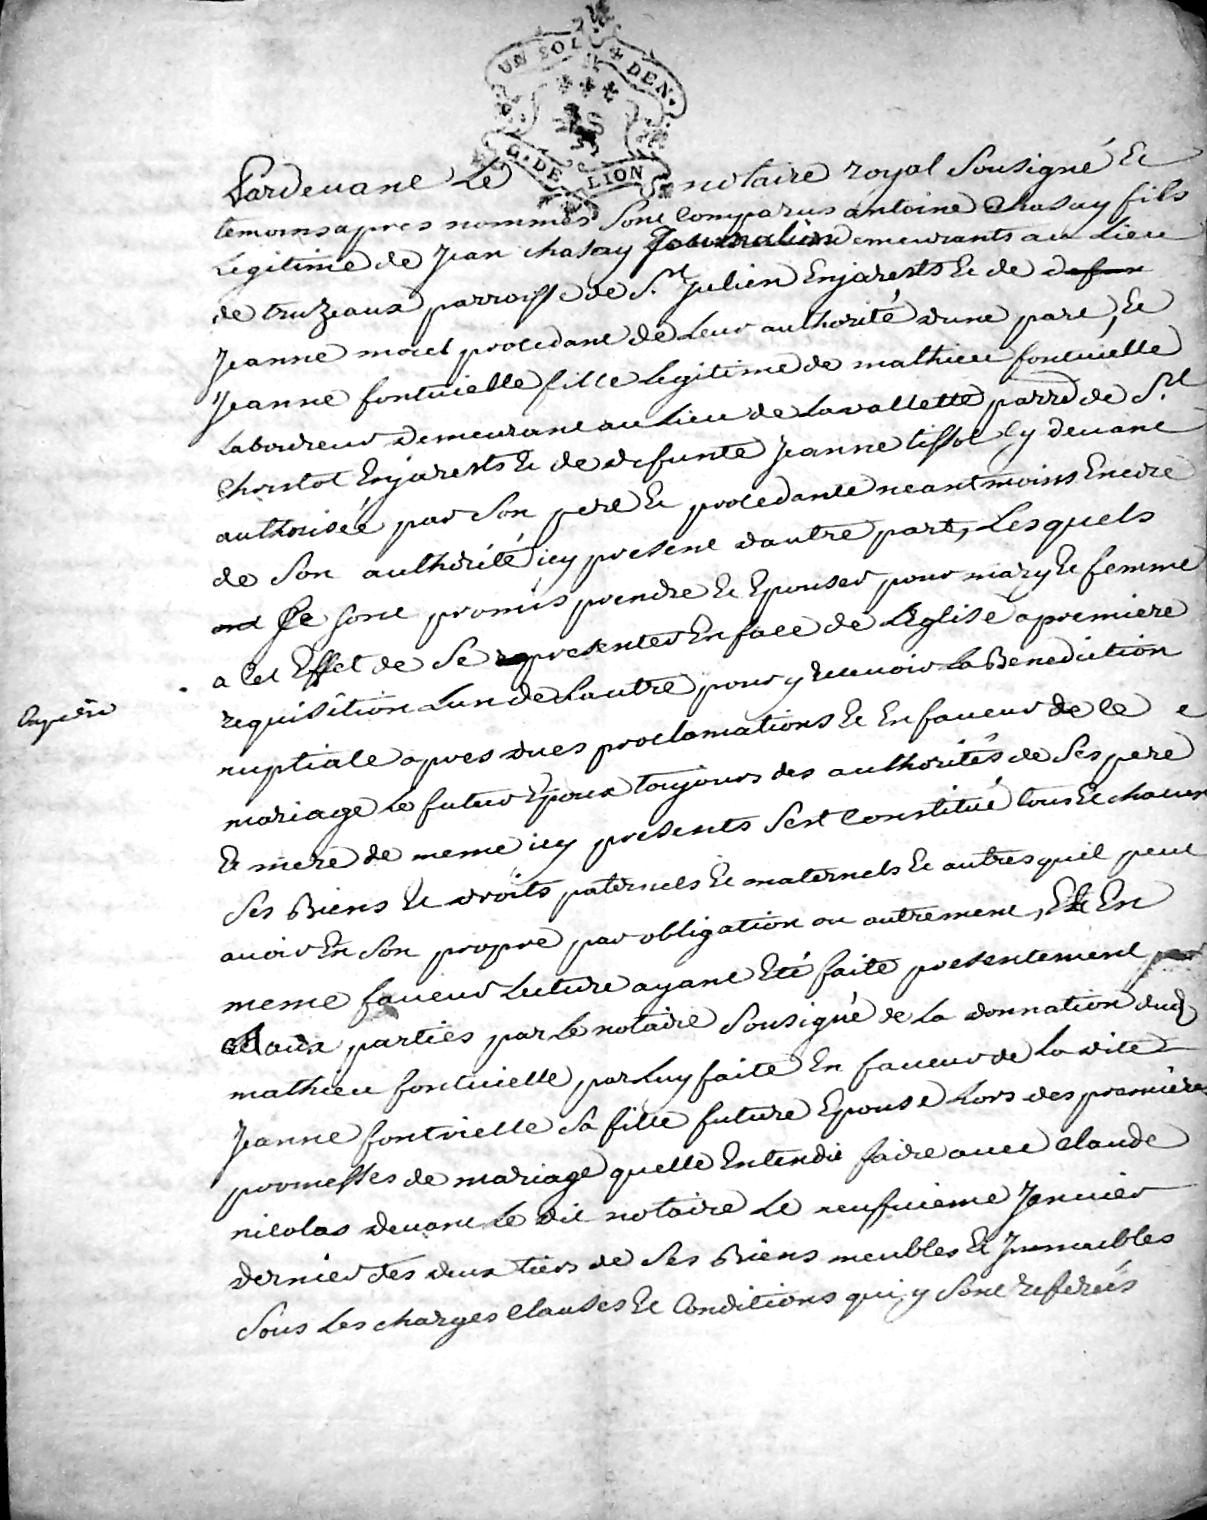 UN SOL 4 DEN.
G. DE LION
Pardevant Le notaire royal Sousigné Et
temoins apres nommés Sont Comparus antoine Chasay fils
Legitime de Jean chasay Journalier demeurants au Lieu
de truzeaux parroisse de St Julien Enjarests Et de defun
Jeanne morel procedant de Leur authorité d'une part, Et
Jeanne fontvielle fille Legitime de mathieu fontvielle
Laboureur Demeurant au Lieu de Lavallette parre de St
Christot Enjarests Et de defunte Jeanne tissot Cy devant
authorisée par Son pere Et procedante neantmoins Encore
de Son authorité icy present dautre part, Lesquels
ont Se sont promis prendre Et Epouser pour mary Et femme
a Cet Effet de Se representer En face de L'Eglise a premiere
requisition Lun de Lautre pour y recevoir La Benediction
nuptiale apres dues proclamations Et En faveur de Ce
mariage Le futur Epoux toujours des authorités de Ses pere
Et mere de meme icy presents Sest Constitué tous Et chacun
Ses Biens Et droits paternels Et maternels Et autres quil peut
avoir En Son propre par obligation ou autrement, Et En
meme faveur Lecture ayant Eté faite presentement
aux parties par Le notaire Sousigné de La donnation dud
mathieu fontvielle par Luy faite En faveur de La dite
Jeanne fontvielle Sa fille future Epouse Lors des premieres
promesses de mariage quelle Entendit faire avec Claude
nicolas devant Le dit notaire Le neufvieme Janvier
dernier des deux tiers de Ses Biens meubles Et Immeubles
Sous Les charges Clauses Et Conditions qui y Sont referées